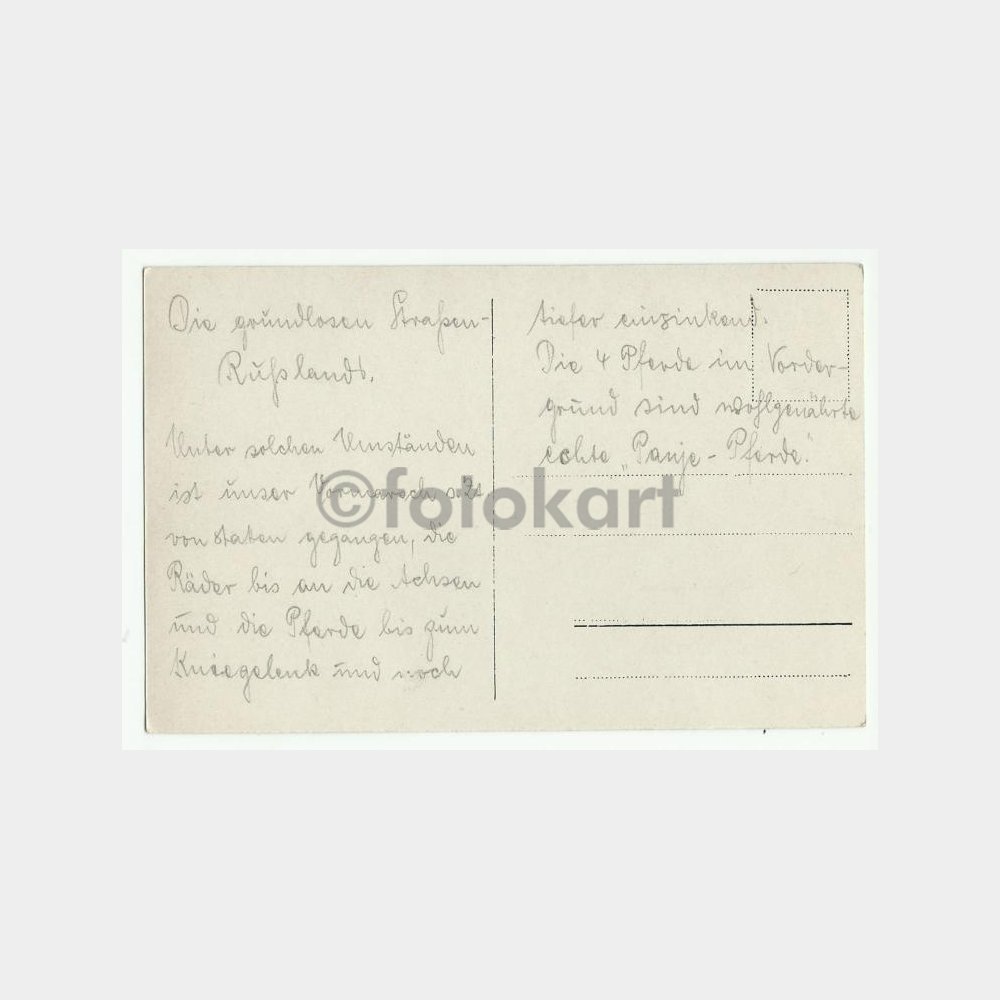 Die grundlosen Straßen-
Rußlands.
Unter solchen Umständen
ist unser Vormarsch oft
von staten gegangen, die
Räder bis an die Achsen
und die Pferde bis zum
Kniegelenk und noch
tiefer einzinkend.
Die 4 Pferde im Vorder-
grund sind wohlgenährte
echte „Panje-Pferde."
©fotokart